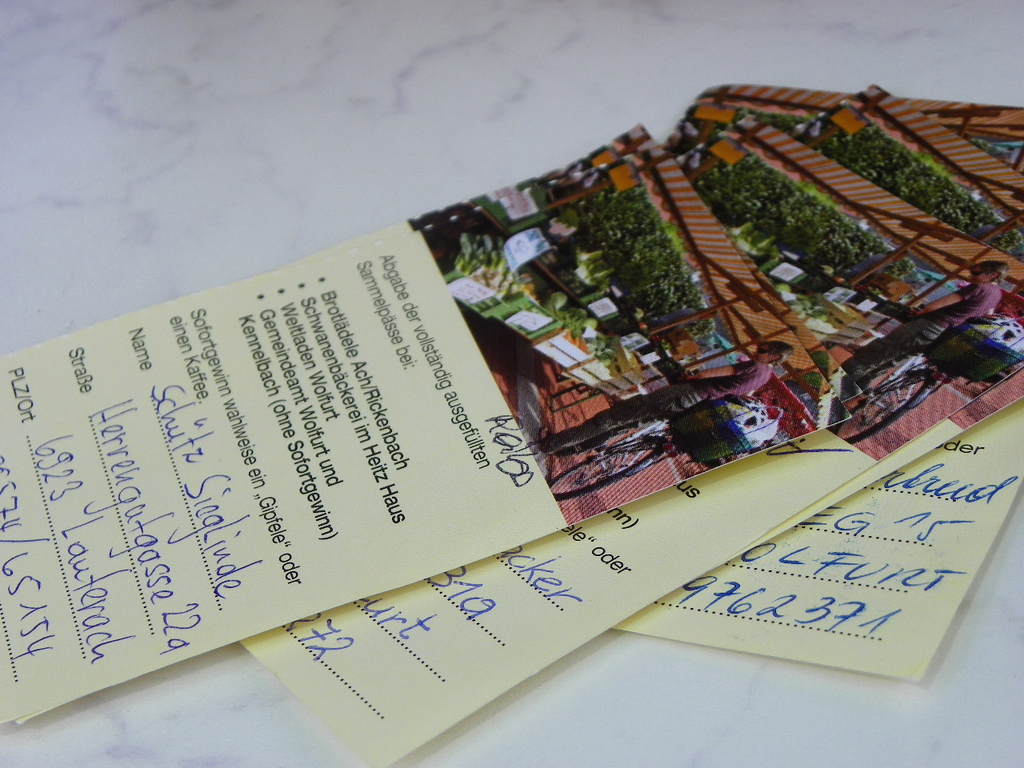 Abgabe der vollständig ausgefüllten
Sammelpässe bei:
• Brotlädele Ach/Rickenbach
• Schwanenbäckerei im Heitz Haus
• Weltladen Wolfurt
• Gemeindeamt Wolfurt und
Kennelbach (ohne Sofortgewinn)
Sofortgewinn wahlweise ein „Gipfele" oder
einen Kaffee.
Name Schütz Sieglinde
Straße Herrengutgasse 22a
PLZ/Ort 6923 Lauterach
05574/65154
us
nn)
ele" oder
ocker
319
urt
72
oder
EG 15
OLFURT
9762371